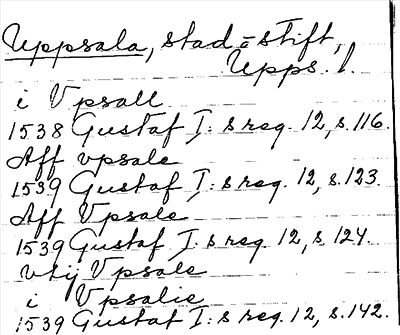 Uppsala, stad o stift,
Upps. l.
i Vpsall
1538 Gustaf I: s reg. 12, s. 116.
Aff vpsale
1539 Gustaf I: s reg. 12, s. 123.
Aff Vpsale
1539 Gustaf I: s reg. 12, s. 124.
vtij Vpsale
i Vpsalie
1539 Gustaf I: s reg. 12, s. 142.